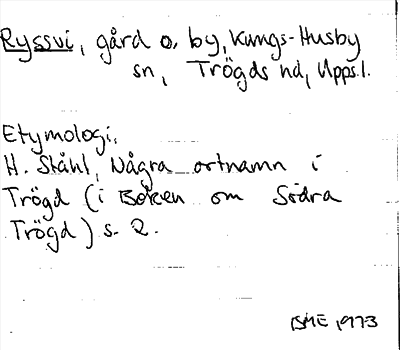 Ryssvi, gård o. by, Kungs-Husby
sn, Trögds hd, Upps.l.
Etymologi.
H. Ståhl, Några ortnamn i
Trögd (i Boken om Södra
Trögd) s. 2.
BME 1973